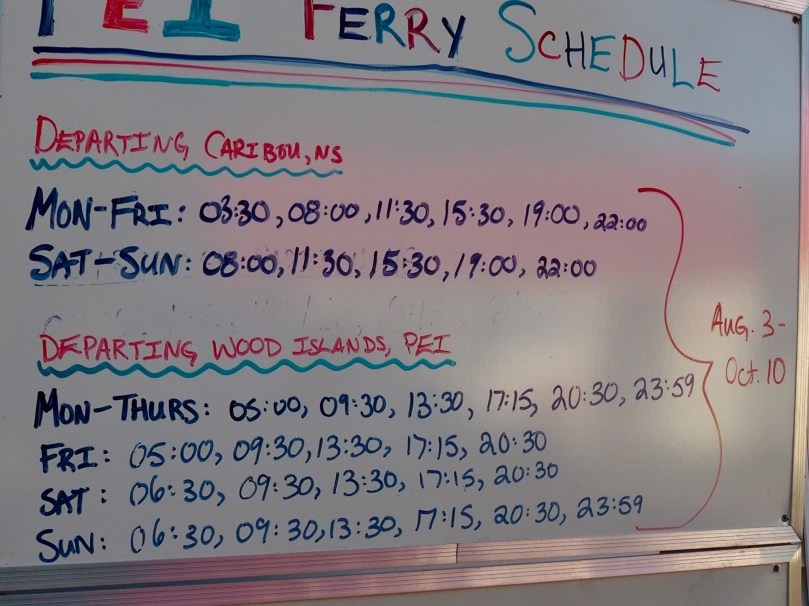 PEI FERRY SCHEDULE
DEPARTING CARIBOU, NS
MON-FRI: 03:30, 08:00, 11:30, 15:30, 19:00, 22:00
SAT-SUN: 08:00, 11:30, 15:30, 19:00, 22:00
DEPARTING WOOD ISLANDS, PEI
MON-THURS: 05:00, 09:30, 13:30, 17:15, 20:30, 23:59
FRI: 05:00, 09:30, 13:30, 17:15, 20:30
SAT: 06:30, 09:30, 13:30, 17:15, 20:30
SUN: 06:30, 09:30, 13:30, 17:15, 20:30, 23:59
AUG. 3-
OCT. 10